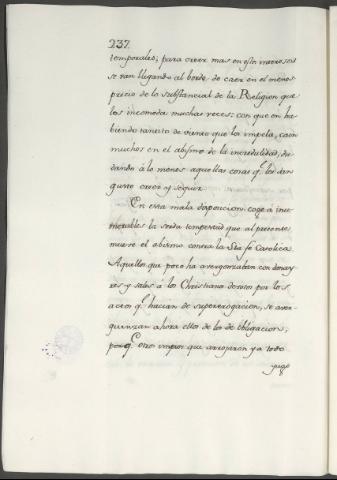 237
temporales; para creer mas en estos
se van llegando al borde de caer en el menos
precio de lo substancial de la Religion que
los incomoda muchas veces: con que en ha
biendo tantito de viento que los impela, caen
muchos en el abismo de la incredulidad, du
dando á lo menos aquellas cosas q.e les dis
gusta creer y seguir.
En esta mala disposicion coge á inu
merables la sorda tempestad que al presente
mueve el abismo contra la Sta fe Catolica.
Aquellos que poco ha avergonzaban con donay
res y sales á los Christianos devotos por los
actos q.e hacian de supererogacion, se aver
guenzan ahora ellos de los de obligacion;
porq.e otros impios que arrojaron ya todo
yugo